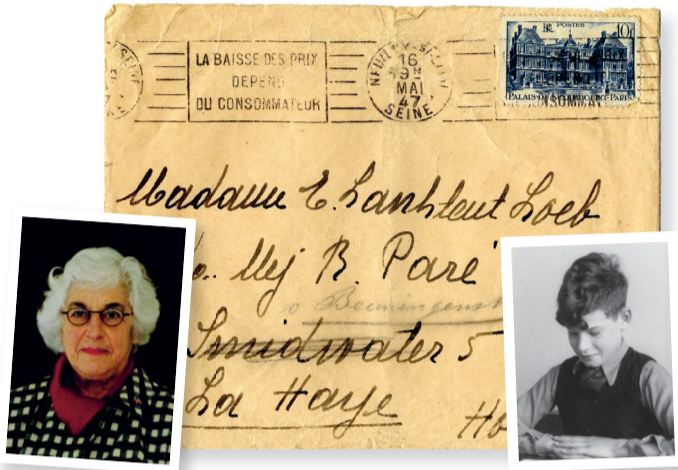 LA BAISSE DES PRIX
DEPEND
DU CONSOMMATEUR
NEUILLY-S-SEINE
16
19H
MAI
47
SEINE
POSTES 10F
PALAIS DU LUXEMBOURG-PARIS
Madame E. Loeb
Mej R. Paré
v Beuningenst
Smidwater 5
La Haye
Ho